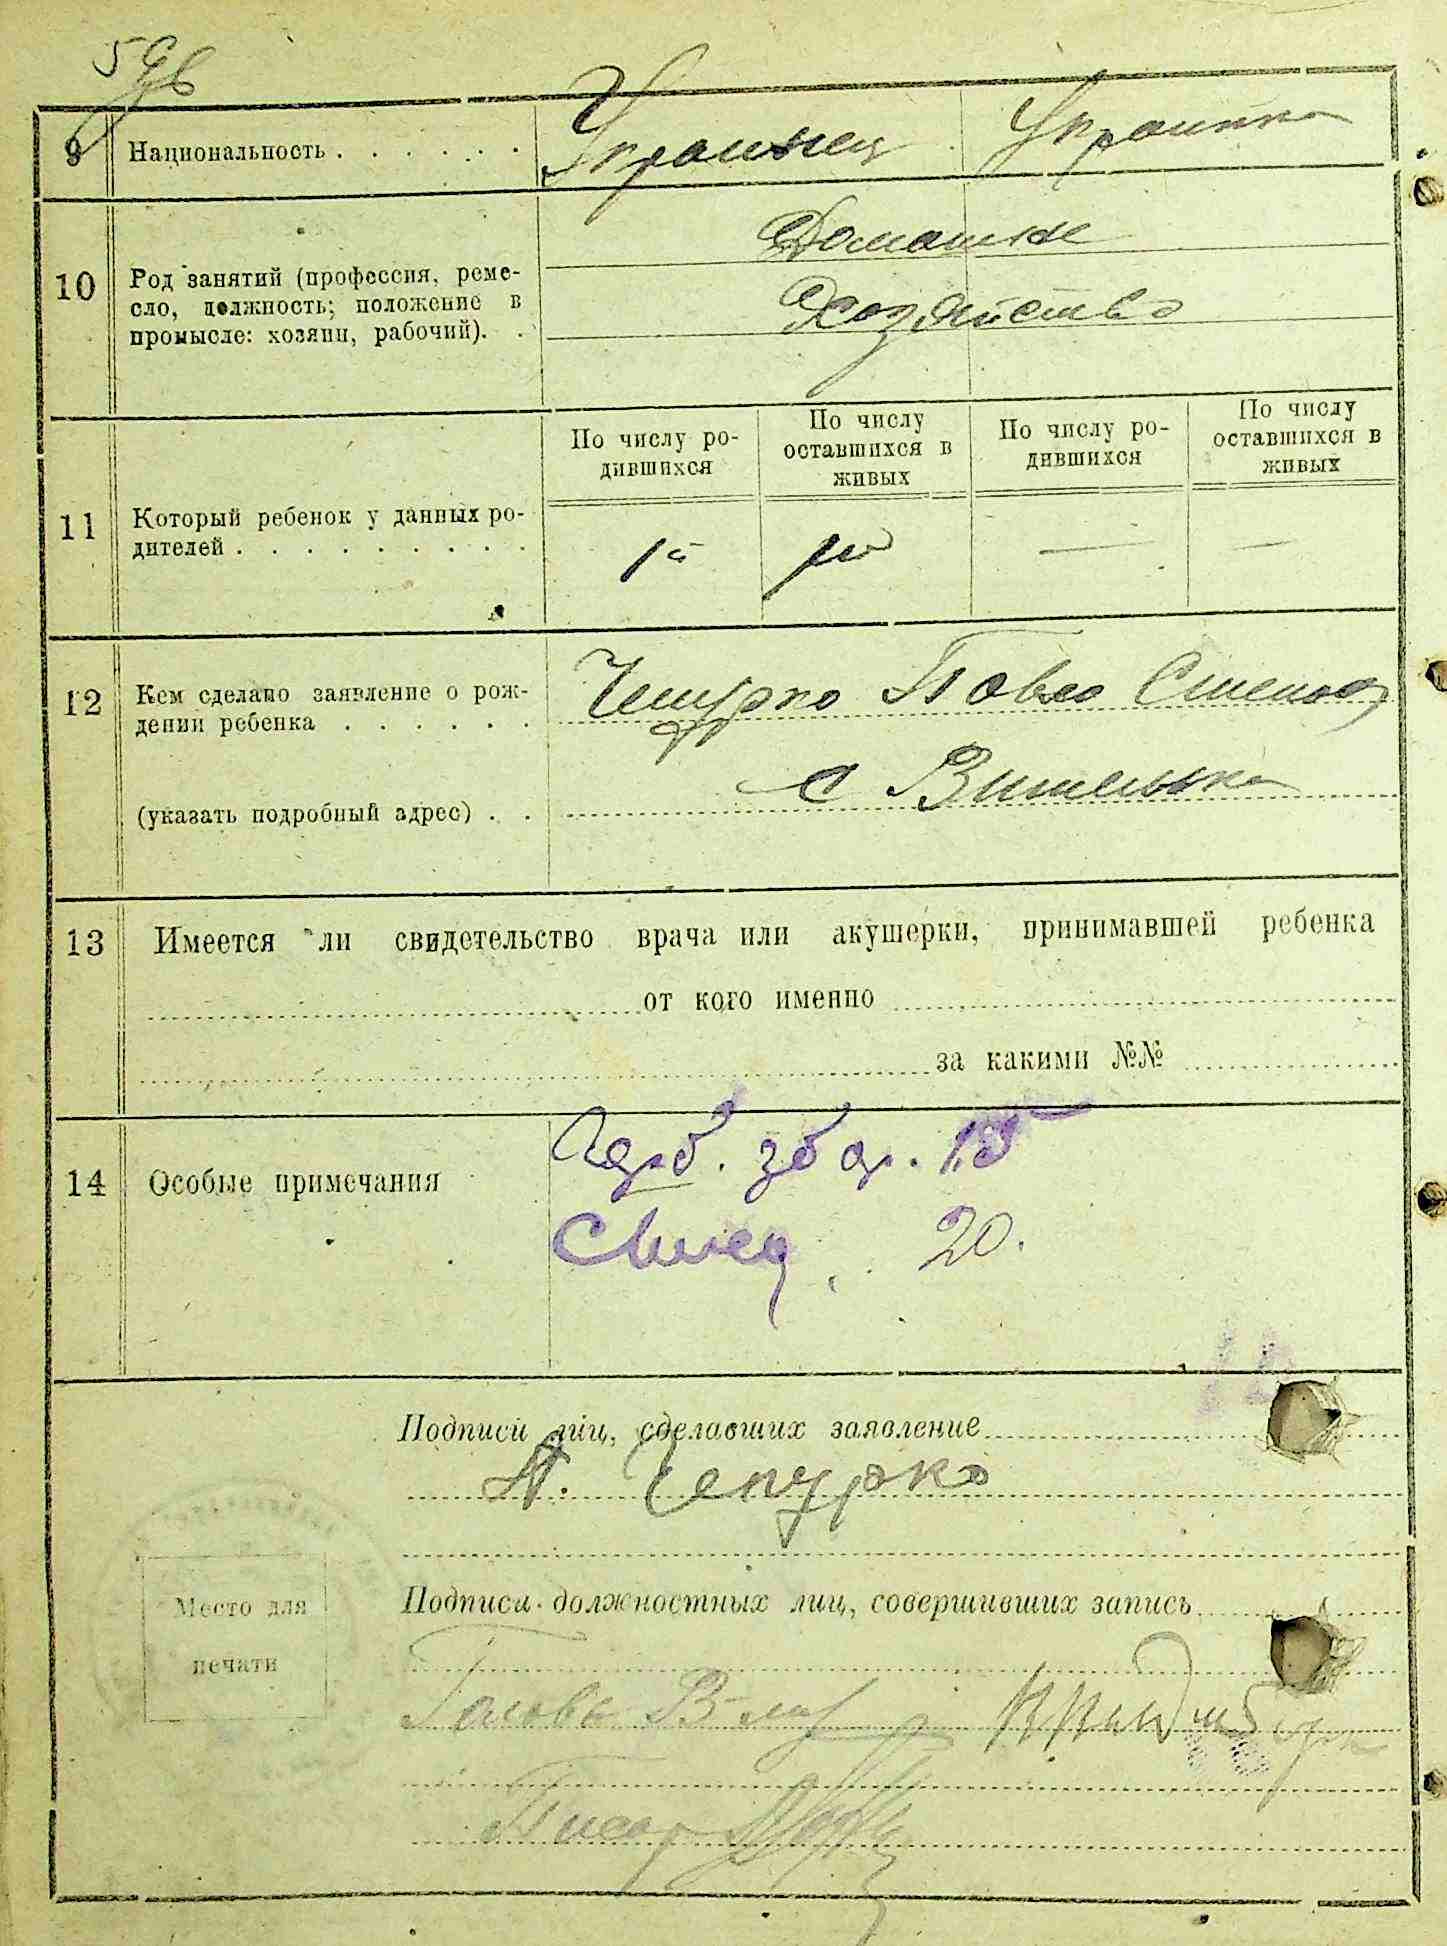 59б
9 Национальность . . . . . . Украинец Украинка
10 Род занятий (профессия, ремесло, должность; положение в промысле: хозяин, рабочий). .
Домашне
Хозяйство
По числу родившихся
По числу оставшихся в живых
По числу родившихся
По числу оставшихся в живых
11 Который ребенок у данных родителей . . . . . . . . . 1й 1й — —
12 Кем сделано заявление о рождении ребенка . . . . . . Чепурко Павло Степан
(указать подробный адрес) . . с
13 Имеется ли свидетельство врача или акушерки, принимавшей ребенка
от кого именно
за какими №№
14 Особые примечания
Герб. збор. 15
20.
Подписи лиц, сделавших заявление
П. Чепурко
Подписи должностных лиц, совершивших запись
Место для
печати
Голова
Писар